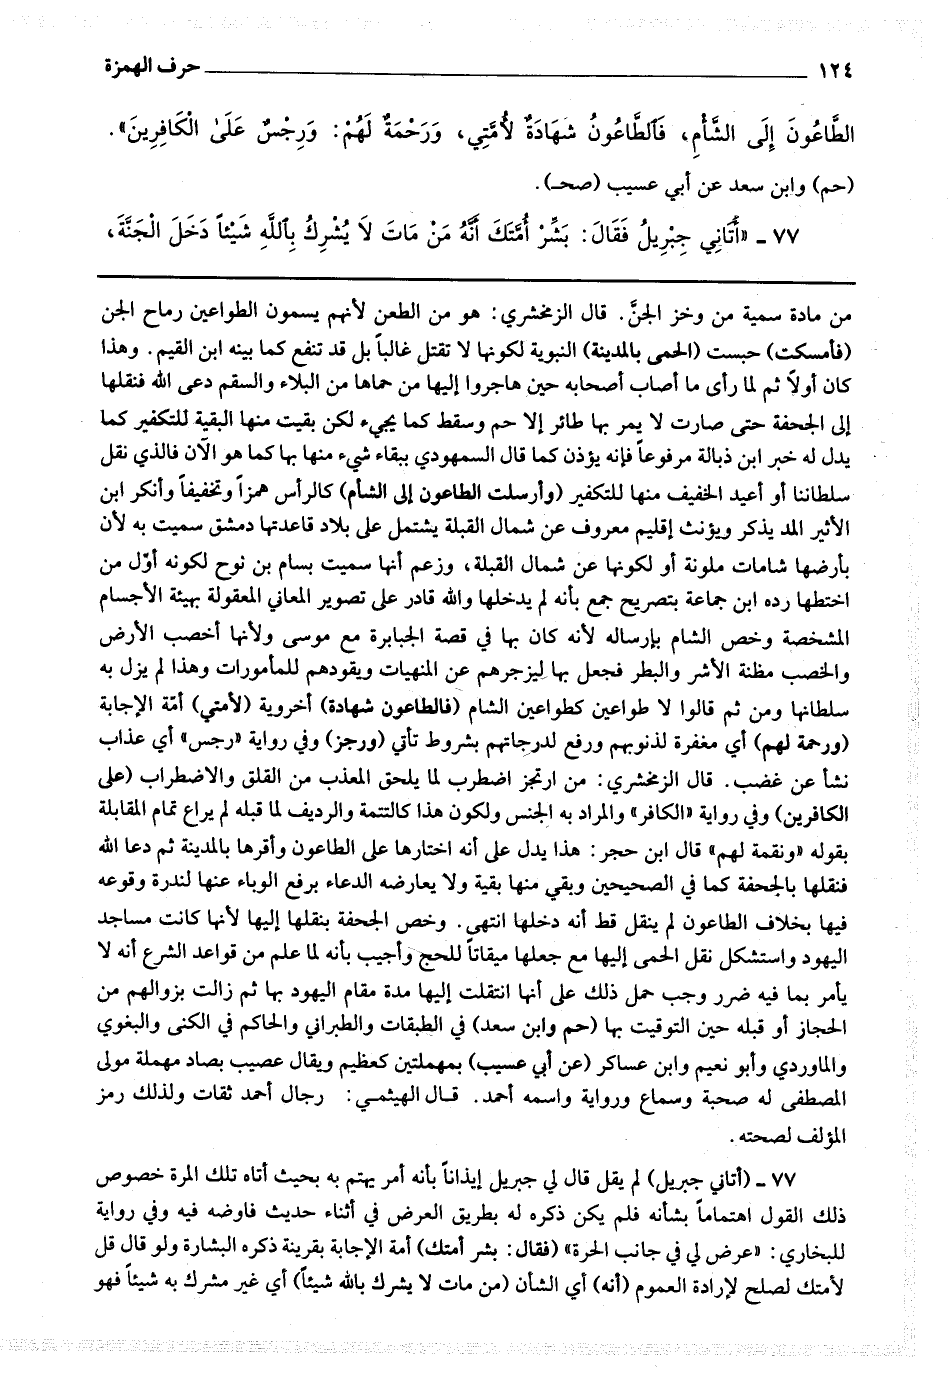 ١٢٤ حرف الهمزة
الطَّاعُونَ إِلَى الشَّأْمِ، فَالطَّاعُونُ شَهَادَةٌ لأُمَّتِي، وَرَحْمَةٌ لَهُمْ: وَرِجْسٌ عَلَىٰ الْكَافِرِينَ».
(حم) وابن سعد عن أبي عسيب (صحـ).
٧٧ ـ «أَتَانِي جِبْرِيلُ فَقَالَ: بَشِّرْ أُمَّتَكَ أَنَّهُ مَنْ مَاتَ لَا يُشْرِكُ بِاللَّهِ شَيْئاً دَخَلَ الْجَنَّةَ،
من مادة سمية من وخز الجنَّ. قال الزمخشري: هو من الطعن لأنهم يسمون الطواعين رماح الجن
(فأمسكت) حبست (الحمى بالمدينة) النبوية لكونها لا تقتل غالباً بل قد تنفع كما بينه ابن القيم. وهذا
كان أولاً ثم لما رأى ما أصاب أصحابه حين هاجروا إليها من حماها من البلاء والسقم دعى الله فنقلها
إلى الجحفة حتى صارت لا يمر بها طائر إلا حم وسقط كما يجيء لكن بقيت منها البقية للتكفير كما
يدل له خبر ابن ذبالة مرفوعاً فإنه يؤذن كما قال السمهودي ببقاء شيء منها بها كما هو الآن فالذي نقل
سلطاننا أو أعيد الخفيف منها للتكفير (وأرسلت الطاعون إلى الشأم) كالرأس همزاً وتخفيفاً وأنكر ابن
الأثير المد يذكر ويؤنث إقليم معروف عن شمال القبلة يشتمل على بلاد قاعدتها دمشق سميت به لأن
بأرضها شامات ملونة أو لكونها عن شمال القبلة، وزعم أنها سميت بسام بن نوح لكونه أوّل من
اختطها رده ابن جماعة بتصريح جمع بأنه لم يدخلها والله قادر على تصوير المعاني المعقولة بهيئة الأجسام
المشخصة وخص الشام بإرساله لأنه كان بها في قصة الجبابرة مع موسى ولأنها أخصب الأرض
والخصب مظنة الأشر والبطر فجعل بها ليزجرهم عن المنهيات ويقودهم للمأمورات وهذا لم يزل به
سلطانها ومن ثم قالوا لا طواعين كطواعين الشام (فالطاعون شهادة) أخروية (لأمتي) أمّة الإجابة
(ورحمة لهم) أي مغفرة لذنوبهم ورفع لدرجاتهم بشروط تأتي (ورجز) وفي رواية «رجس» أي عذاب
نشأ عن غضب. قال الزمخشري: من ارتجز اضطرب لما يلحق المعذب من القلق والاضطراب (على
الكافرين) وفي رواية «الكافر» والمراد به الجنس ولكون هذا كالتتمة والرديف لما قبله لم يراع تمام المقابلة
بقوله «ونقمة لهم» قال ابن حجر: هذا يدل على أنه اختارها على الطاعون وأقرها بالمدينة ثم دعا الله
فنقلها بالجحفة كما في الصحيحين وبقي منها بقية ولا يعارضه الدعاء برفع الوباء عنها لندرة وقوعه
فيها بخلاف الطاعون لم ينقل قط أنه دخلها انتهى. وخص الجحفة بنقلها إليها لأنها كانت مساجد
اليهود واستشكل نقل الحمى إليها مع جعلها ميقاتاً للحج وأجيب بأنه لما علم من قواعد الشرع أنه لا
يأمر بما فيه ضرر وجب حمل ذلك على أنها انتقلت إليها مدة مقام اليهود بها ثم زالت بزوالهم من
الحجاز أو قبله حين التوقيت بها (حم وابن سعد) في الطبقات والطبراني والحاكم في الكنى والبغوي
والماوردي وأبو نعيم وابن عساكر (عن أبي عسيب) بمهملتين كعظيم ويقال عصيب بصاد مهملة مولى
المصطفى له صحبة وسماع ورواية واسمه أحمد. قـال الهيثمـي: رجال أحمد ثقات ولذلك رمز
المؤلف لصحته.
٧٧ ـ (أتاني جبريل) لم يقل قال لي جبريل إيذاناً بأنه أمر يهتم به بحيث أتاه تلك المرة خصوص
ذلك القول اهتماماً بشأنه فلم يكن ذكره له بطريق العرض في أثناء حديث فاوضه فيه وفي رواية
للبخاري: «عرض لي في جانب الحرة» (فقال: بشر أمتك) أمة الإجابة بقرينة ذكره البشارة ولو قال قل
لأمتك لصلح لإرادة العموم (أنه) أي الشأن (من مات لا يشرك بالله شيئاً) أي غير مشرك به شيئاً فهو